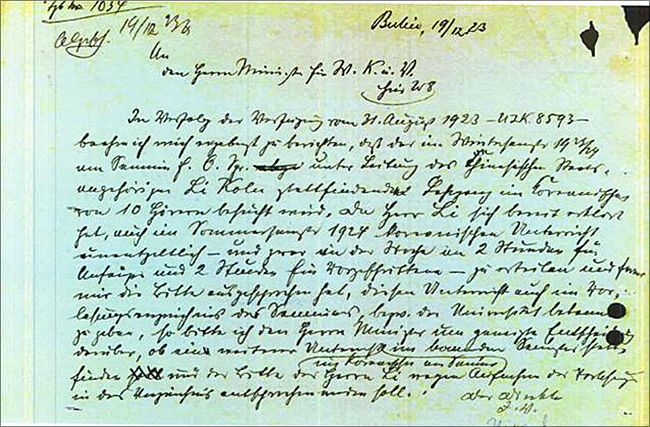 Tgb No 1054
19/12 23
Berlin, 19/12 23
An
den Herrn Minister für W. K. u. V.
hier W8
In Verfolg der Verfügung vom 31. August 1923 – UIK 8593 –
beehre ich mich ergebenst zu berichten, daß der im Wintersemester 1923/24
am Seminar f. O. Spr. unter Leitung des Chinesischen Staats-
angehörigen Li Kolu stattfindende Lehrgang im Koreanischen
von 10 Hörern besucht wird. Da Herr Li sich bereit erklärt
hat, auch im Sommersemester 1924 koreanischen Unterricht
unentgeltlich – und zwar in der Woche in 2 Stunden für
Anfänger und 2 Stunden für Vorgeschrittene – zu erteilen und ferner
mir die Bitte ausgesprochen hat, diesen Unterricht auch im Vor-
lesungsverzeichnis des Seminars, bezw. der Universität bekannt
zu geben, so bitte ich den Herrn Minister um geneigte Entscheidung
darüber, ob ein weiterer Unterricht im kommenden Semester statt-
im Koreanischen am Seminar
finden und der Bitte des Herrn Li wegen Aufnahme der Vorlesung
in das Verzeichnis entsprochen werden soll.
Der Direktor
I. V.